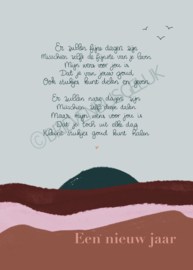 Er zullen fijne dagen zijn
Misschien zelfs de fijnste van je leven
Mijn wens voor jou is
Dat je van jouw goud
Ook stukjes kunt delen en geven
Er zullen nare dagen zijn
Misschien zelfs diepe dalen
Maar mijn wens voor jou is
Dat je toch uit elke dag
Kleine stukjes goud kunt halen
Een nieuw jaar